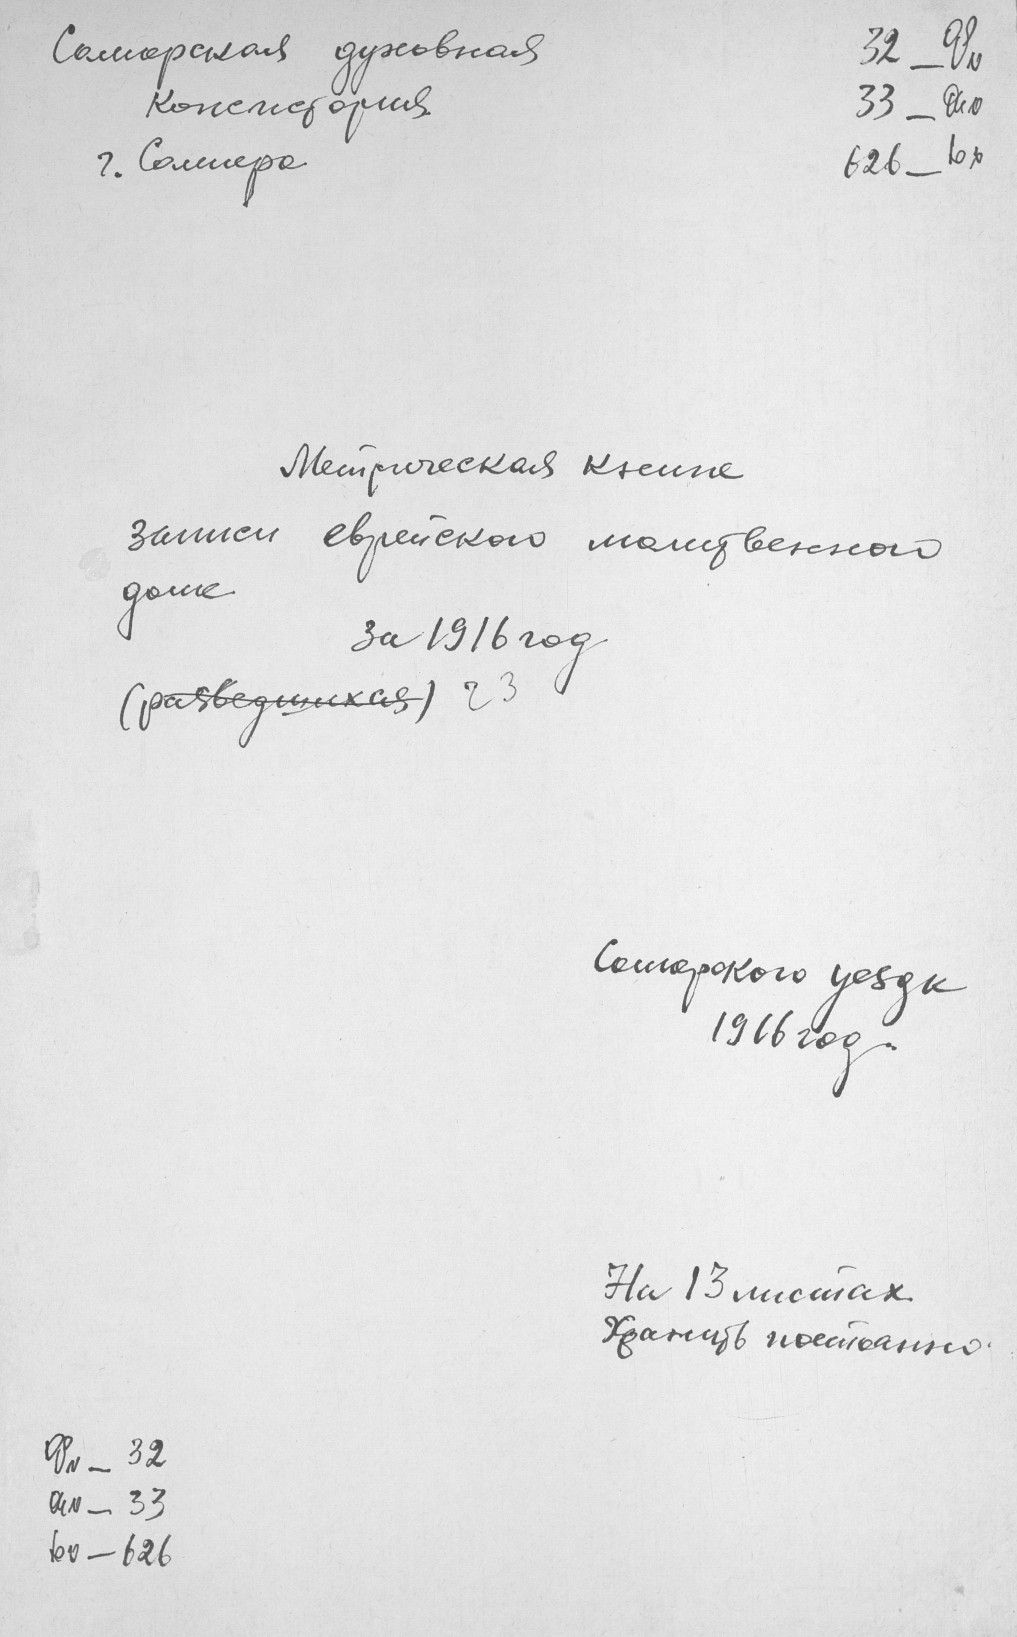 Самарская духовная
32 – Ф№
Консистория
33 – оп
г. Самара
626 – ед
Метрическая книга
записи еврейского молитвенного
дома
за 1916 год
(разведшихся) ч 3
Самарского уезда
1916 год.
На 13 листах
Хранить постоянно.
Ф№ – 32
оп – 33
ед – 626